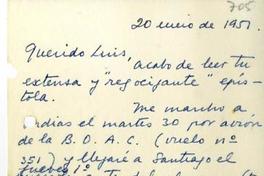 705
20 enero de 1951.
Querido Luis,
acabo de leer tu
extensa y "regocijante" epís-
tola.
Me marcho a
Indias el martes 30 por avión
de la B.O.A.C. (vuelo nº
351) y llegaré a Santiago el
jueves 1º